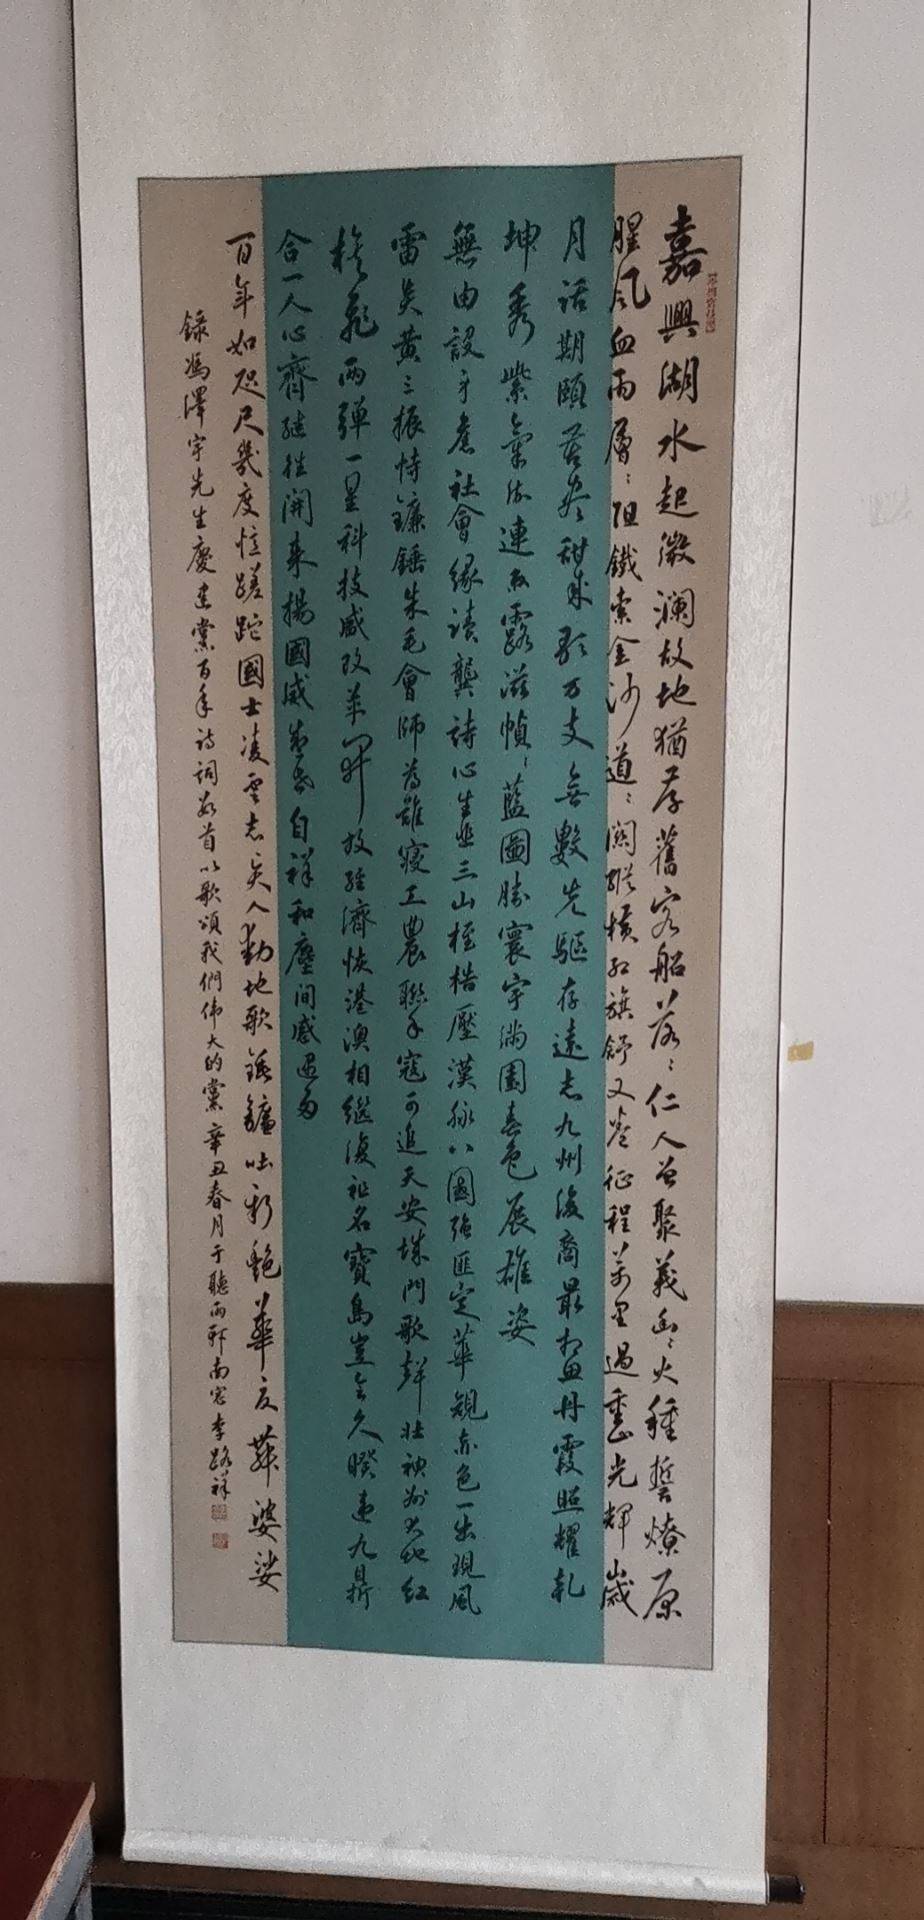 嘉興湖水起微瀾故地猶存舊客船落〻仁人曾聚義凶〻火種誓燎原
腥風血雨層〻阻鐵索金沙道〻關縱橫紅旗舒又卷征程萬里過重光輝歲
月話期頤苦盡甜來歌萬支無數先驅存遠志九州後裔最相思丹霞照耀乾
坤秀紫氣流連雨露滋幀〻藍圖勝寰宇滿園春色展雄姿
無由設身老社會緣讀龔詩心生悲三山桎梏壓漢脉八國強匪定華規赤色一出現風
雷炎黃三振恃鐮錘朱毛會師為雖寢工農聯手寇可追天安城門歌聲壯神州大地紅
旗飛兩彈一星科技盛改革開放經濟恢港澳相繼復祖名寶島豈會久暌違九鼎
合一人心齊繼往開來揚國威
自祥和塵間感遇多
百年如咫尺幾度憶蹉跎國士凌雲志美人動地歌鐮吐彩艷華夏舞婆娑
錄馮澤宇先生慶建黨百年詩詞數首以歌頌我們偉大的黨辛丑春月于聽雨軒南窗李路祥